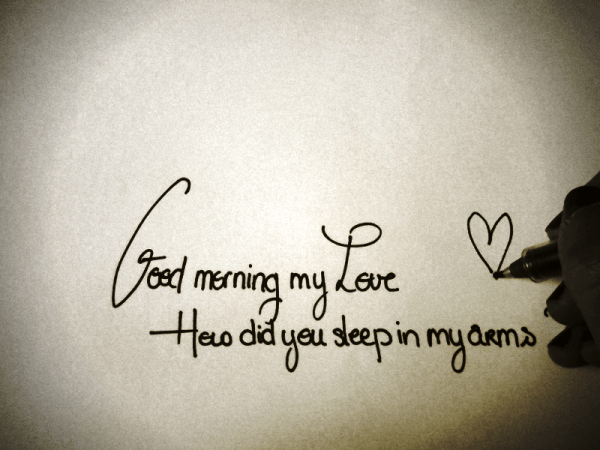 Good morning my Love
How did you sleep in my arms